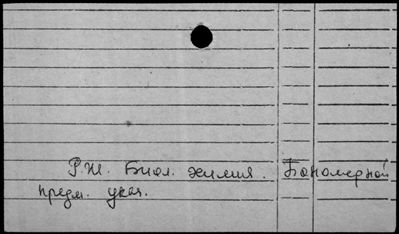 Р.Ж. Биол. химия. Бономерной
предм. указ.